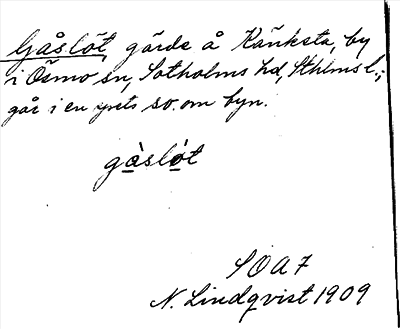 Gåslöt, gärde å Känksta, by
i Ösmo sn, Sotholms hd, Sthlms l.;
går i en spets so. om byn.
gàslót
SOA 7
N. Lindqvist 1909